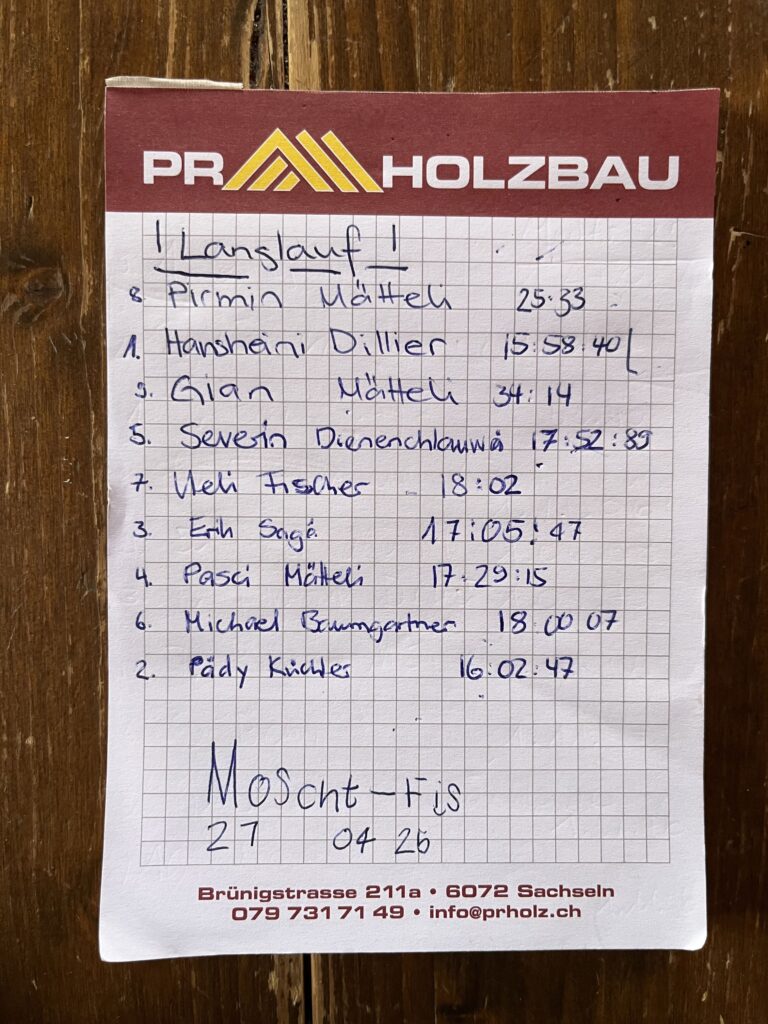 PR HOLZBAU
! Langlauf !
8 Pirmin Mätteli 25:33
1. Hansheini Dillier 15:58:40
9. Gian Mätteli 34:14
5. Severin 17:52:89
7. Ueli Fischer - 18:02
3. Erik Sagä 17:05:47
4. Pasci Mätteli 17:29:15
6. Michael Baumgartner 18 00 07
2. Pädy Küchler 16:02:47
Moscht-Fis
27 04 26
Brünigstrasse 211a • 6072 Sachseln
079 731 71 49 • info@prholz.ch